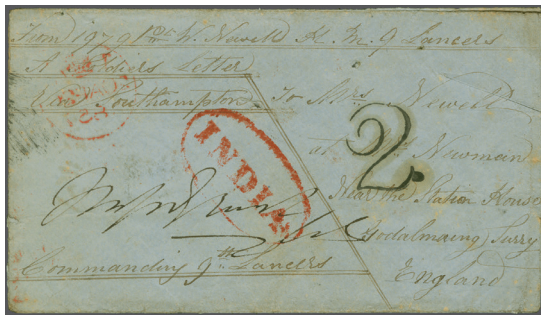 From 1979 Pte W. Newell H. M. 9 Lancers
A Soldiers Letter
Via Southampton
To Mrs Newell
at Mr Newman
Near the Station House
Godalmaing Surry
England
INDIA
2
Commanding 9th Lancers